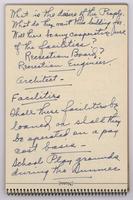 What is the desire of the People.
What do they want this building for
Will there be any cooperative use
of the facilities?
Recreation Board?
Recreation Engineer
Architect -
Facilities
Shall these facilities be
loaned or shall they
be operated on a pay
cost basis -
School Play grounds
during the Summer